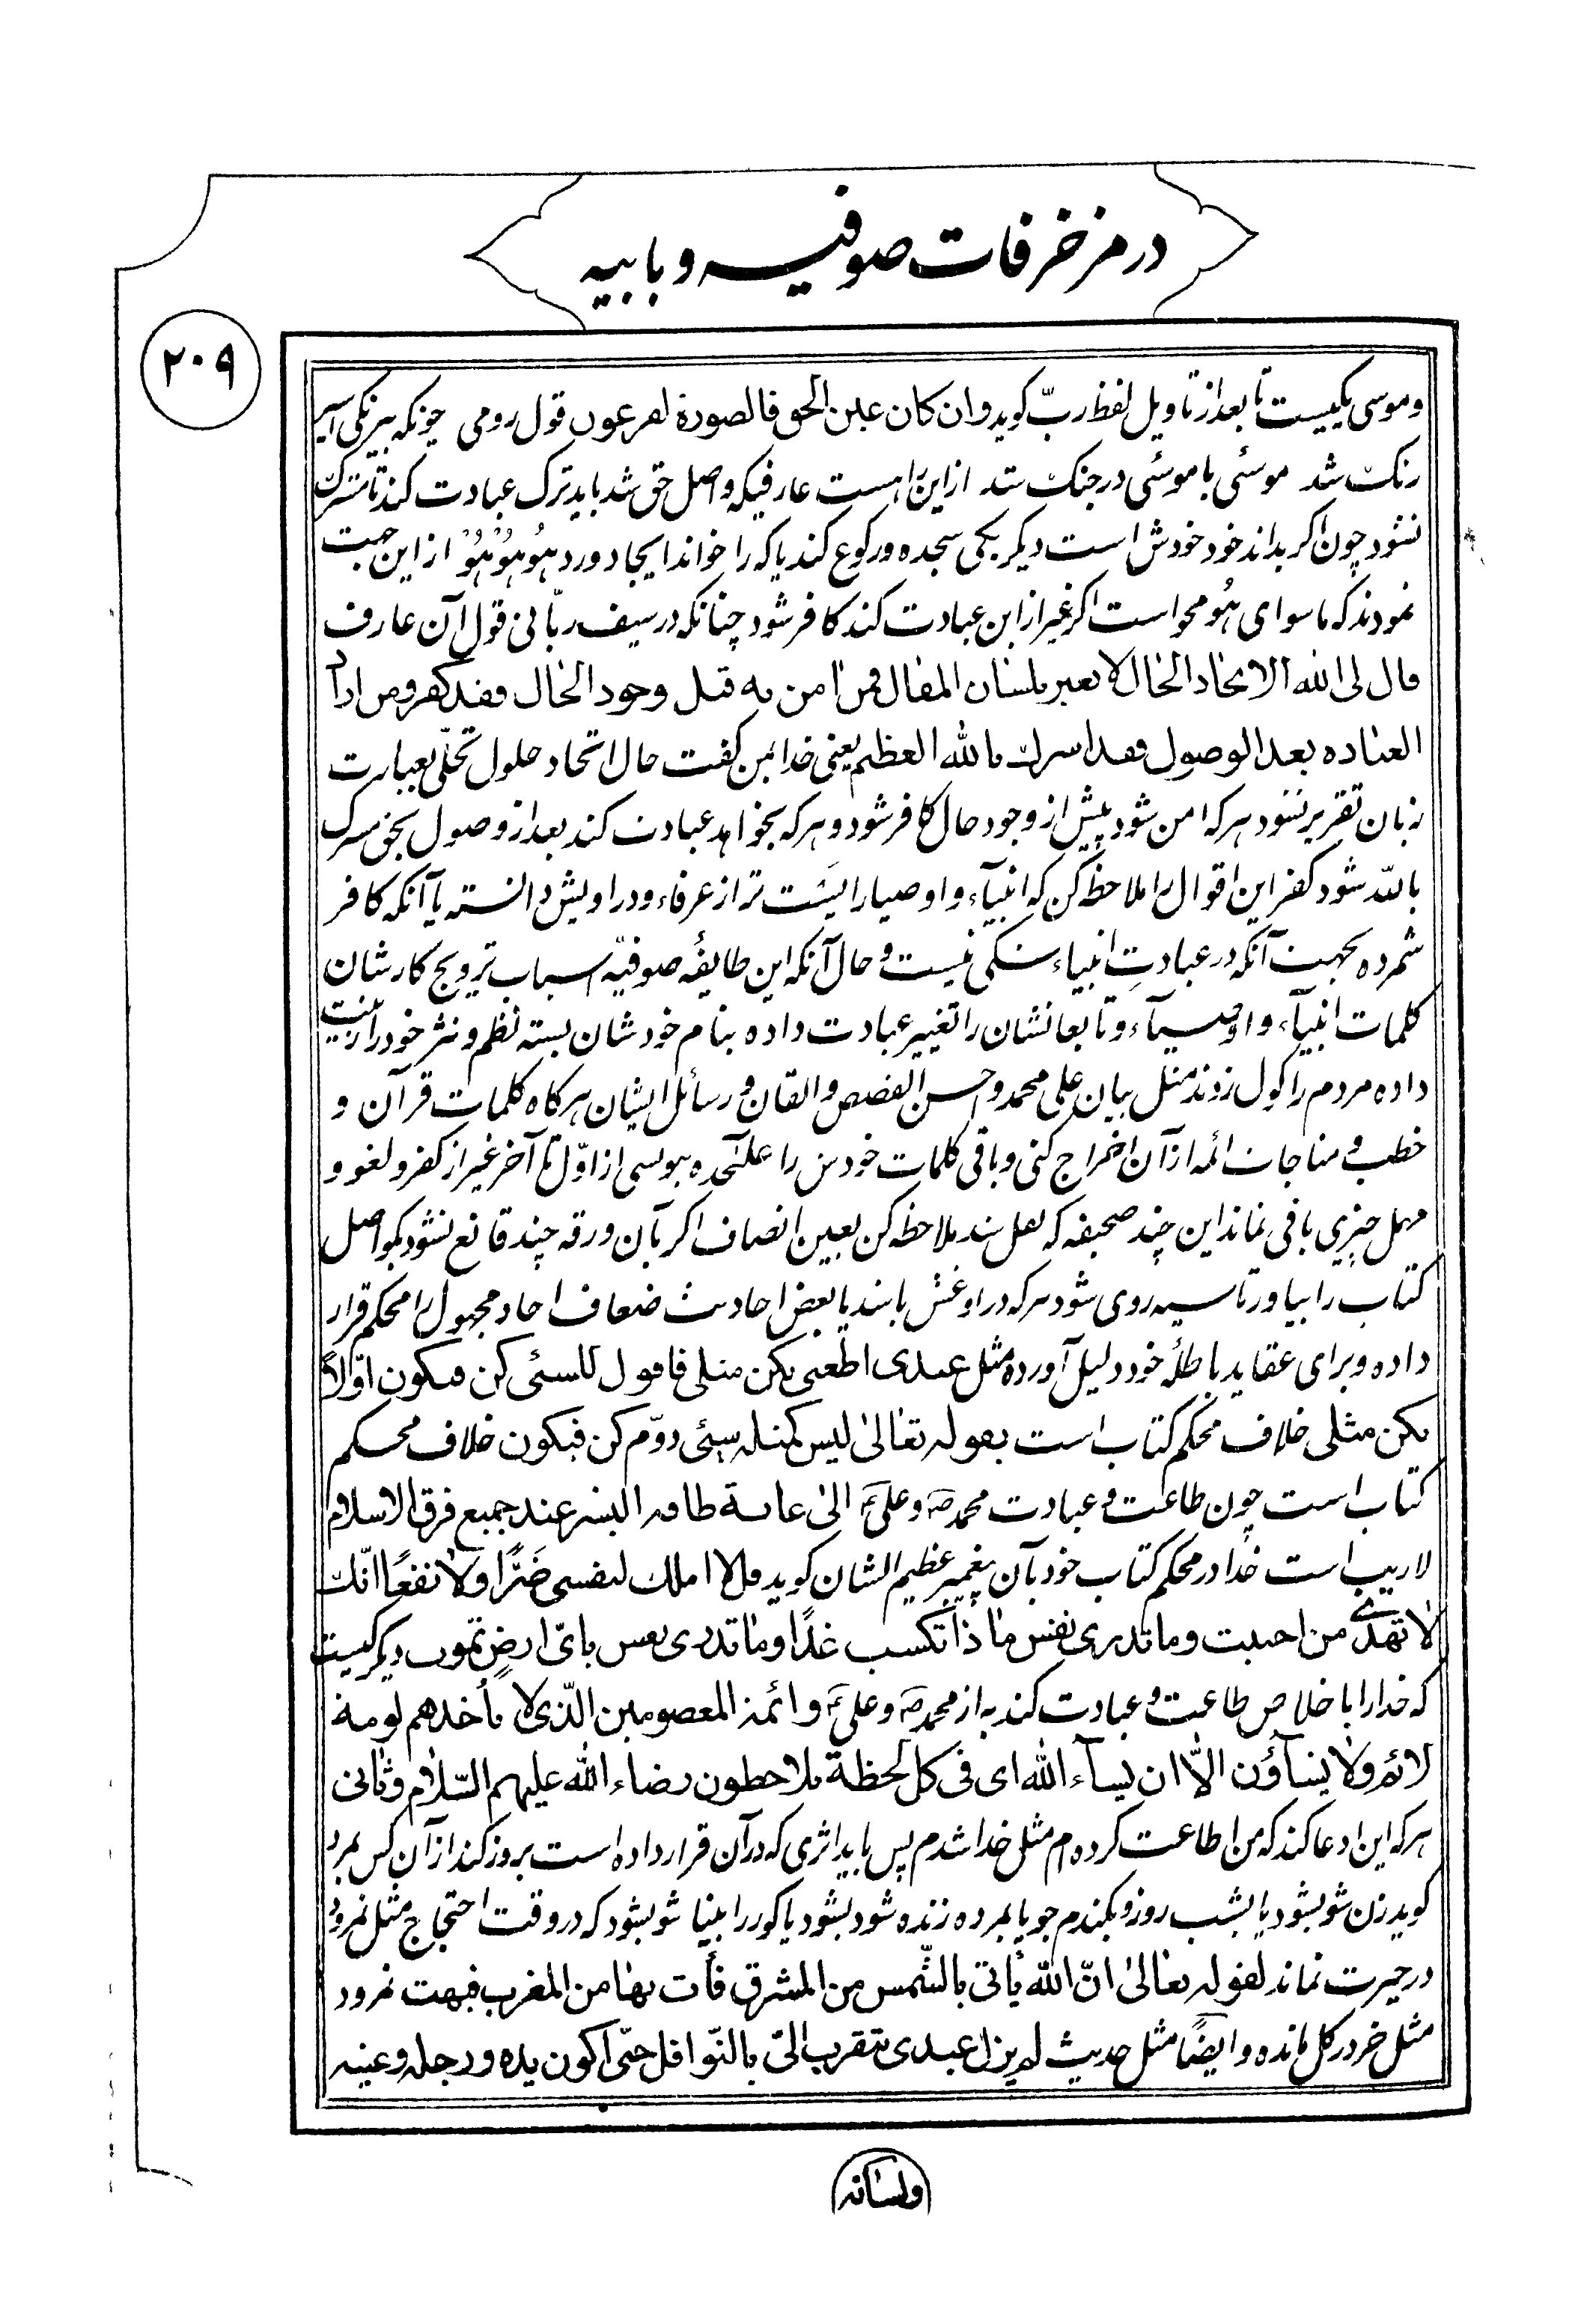 در مزخرفات صوفیه و بابیه
۲۰۹
و موسی یکیست تا بعد از تاویل لفظ ربّ کوید و ان کان عین الحق فالصورة لفرعون قول رومی چونکه بیرنکی اسیر
رنک شد موسئی با موسئی در جنک شد از این راهست عارفیکه واصل حق شد باید ترک عبادت کند تا مشرک
نشود چون اکر بداند خود خودش است دیکر بکی سجده و رکوع کند یا که را خواند ایجاد ورد هُو هُو هُو از این جهت
نمودند که ماسوای هُو محو است اکر غیر از این عبادت کند کافر شود چنانکه در سیف ربّانی قول آن عارف
قال لی الله الاتحاد الحال لا یعبر بلسان المقال فمن امن به قبل وجود الحال فقد کفر و من اراد
العباده بعد الوصول فقد اشرک بالله العظیم یعنی خدا بمن کفت حال اتحاد حلول تجلّی بعبارت
زبان تقریر نشود هرکه امن شود پیش از وجود حال کافر شود و هرکه بخواهد عبادت کند بعد از وصول بحق شرک
بالله شود کفر این اقوال را ملاحظه کن که انبیآء و اوصیا را پست تر از عرفاء و دراویش دانسته یا آنکه کافر
شمرده بجهت آنکه در عبادتِ انبیاء شکی نیست و حال آنکه این طایفهٔ صوفیّه اسباب ترویج کارشان
کلمات انبیآء و اوصیآء و تابعانشان را تغییر عبادت داده بنام خودشان بسته نظم و نثر خود را زینت
داده مردم را کول زدند مثل بیان علی محمد و احسن القصص و ایقان و رسائل ایشان هرکاه کلمات قرآن و
خطب و مناجات ائمه از آن اخراج کنی و باقی کلمات خودش را علیٰحده بنویسی از اوّل تا آخر غیر از کفر و لغو و
مهمل چیزی باقی نماند این چند صحیفه که نقل شد ملاحظه کن بعین انصاف اکر بآن ورقه چند قانع نشود بکو اصل
کتاب را بیاور تا سیه روی شود هرکه در او غش باشد یا بعض احادیث ضعاف احاد مجهول را محکم قرار
داده و برای عقاید باطلهٔ خود دلیل آورده مثل عبدی اطعنی تکن مثلی فاقول للشئی کن فیکون اوّلاً
تکن مثلی خلاف محکم کتاب است بقوله تعالیٰ لیس کمثله شئی دوّم کن فیکون خلاف محکم
کتاب است چون طاعت و عبادت محمد صه و علی عه الیٰ غایة طاقة البشر عند جمیع فرق الاسلام
لاریب است خدا در محکم کتاب خود بآن پیغمبر عظیم الشان کوید قل لا املک لنفسی ضَرًّا و لا نفعًا انّک
لا تهدی من احببت و ما تدری نفس ماذا تکسب غدًا و ما تدری نفس بایّ ارضٍ تموت دیکر کیست
که خدا را با خلاص طاعت و عبادت کند به از محمد صه و علی عه و ائمة المعصومین الّذی لا تأخذهم لومة
لائم و لا یشآؤن الّا ان یشآء الله ای فی کل لحظة یلاحظون رضاء الله علیهم السّلام و ثانی
هرکه این ادعا کند که من اطاعت کرده‌ام مثل خدا شدم پس باید اثری که در آن قرار داده است بروز کند از آن کس بمرد
کوید زن شو بشود یا بشب روز و بکندم جو یا بمرده زنده شود بشود یا کور را بینا شو بشود که در وقت احتجاج مثل نمرود
در حیرت نماند لقوله تعالیٰ انّ الله یأتی بالشّمس من المشرق فأت بها من المغرب فبهت نمرود
مثل خر در کل مانده و ایضًا مثل حدیث لم یزل عبدی یتقرب الیّ بالنّوافل حتّی اکون یده و رجله و عینه
ولسانه